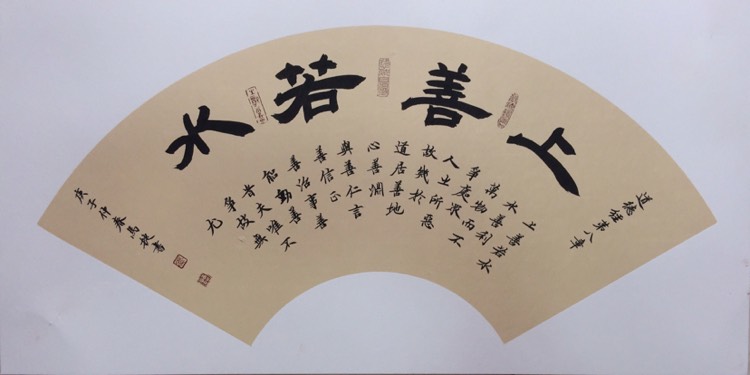 上善若水
道德經第八章
上善若水
水善利
萬物而不
爭處衆
人之所惡
故幾於
道居善地
心善淵
與善仁言
善信正
善治事善
能動善
時夫唯不
爭故無
尤
庚子仲春 書